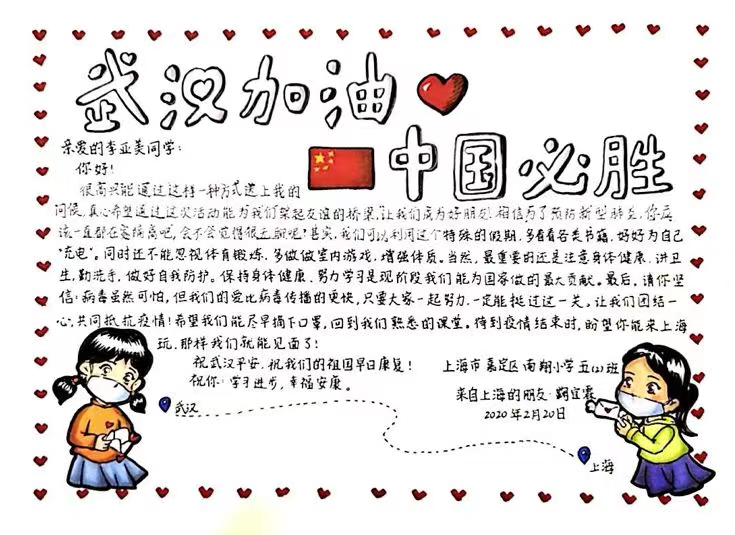 武汉加油
中国必胜
亲爱的李亚美同学:
你好!
很高兴能通过这样一种方式送上我的
问候,真心希望通过这次活动能为我们架起友谊的桥梁,让我们成为好朋友!相信为了预防新型肺炎,你应
该一直都在家隔离吧,会不会觉得很无聊呢?其实,我们可以利用这个特殊的假期,多看看各类书籍,好好为自己
“充电”。同时还不能忽视体育锻炼,多做做室内游戏,增强体质。当然,最重要的还是注意身体健康、讲卫
生,勤洗手,做好自我防护。保持身体健康、努力学习是现阶段我们能为国家做的最大贡献。最后,请你坚
信:病毒虽然可怕,但我们的爱比病毒传播的更快,只要大家一起努力,一定能挺过这一关。让我们团结一
心,共同抵抗疫情!希望我们能尽早摘下口罩,回到我们熟悉的课堂。待到疫情结束时,盼望你能来上海
玩,那样我们就能见面了!
祝武汉平安,祝我们的祖国早日康复!
祝你:学习进步,幸福安康。
上海市嘉定区南翔小学五(2)班
来自上海的朋友:宜霖
2020年2月20日
武汉
上海